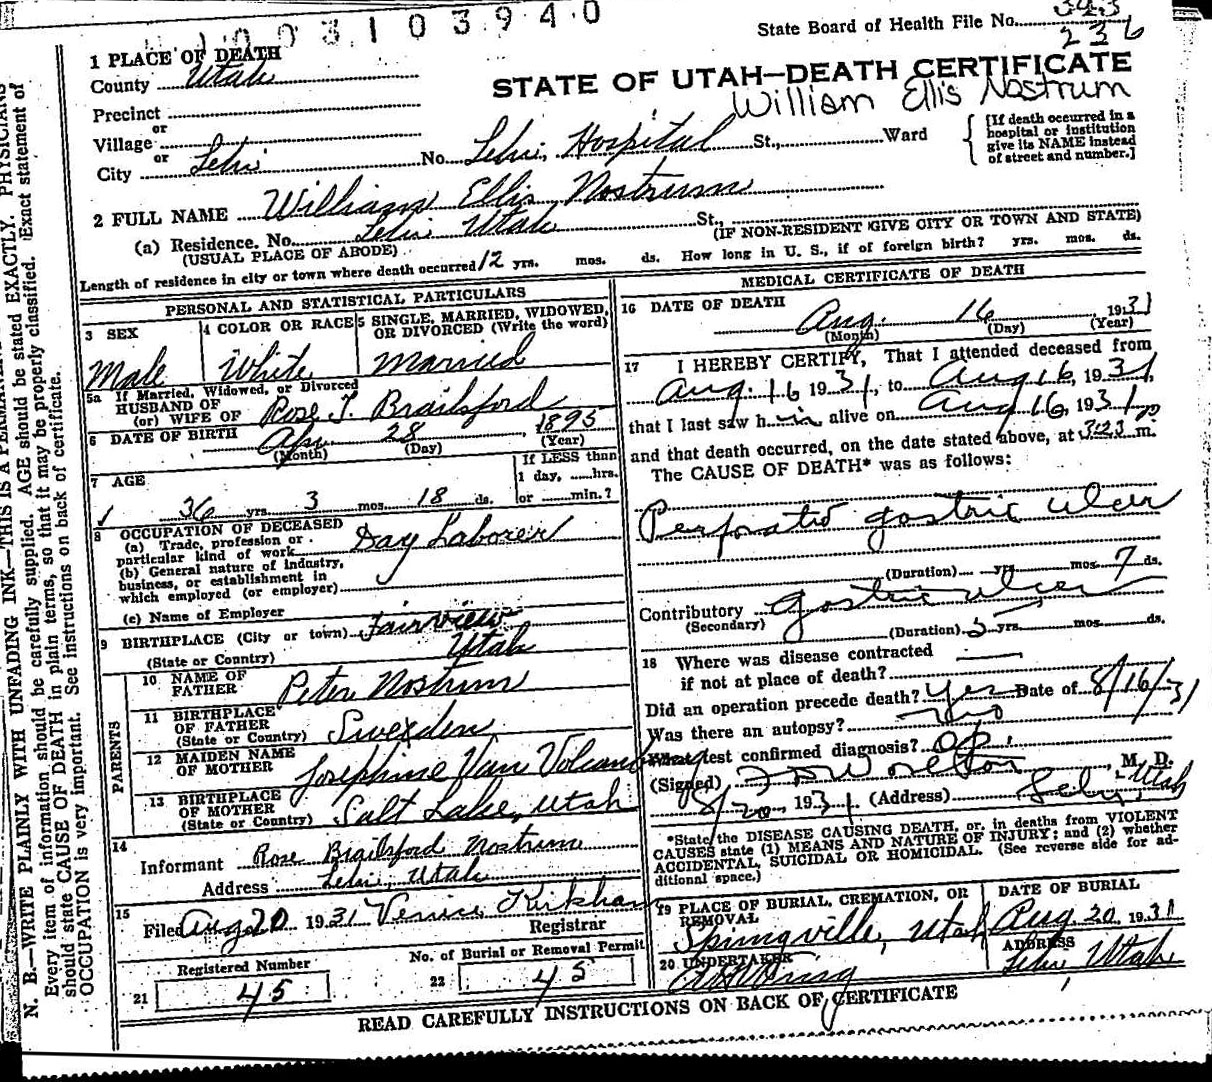 1003103940
State Board of Health File No. 343
236
1 PLACE OF DEATH
County Utah
STATE OF UTAH—DEATH CERTIFICATE
William Ellis Nostrum
Precinct
or
Village
or
City Lehi No. Lehi, Hospital St., Ward
[If death occurred in a
hospital or institution
give its NAME instead
of street and number.]
2 FULL NAME William Ellis Nostrum
(a) Residence. No. Lehi Utah St.,
(USUAL PLACE OF ABODE) (IF NON-RESIDENT GIVE CITY OR TOWN AND STATE)
Length of residence in city or town where death occurred 12 yrs. mos. ds. How long in U. S., if of foreign birth? yrs. mos. ds.
PERSONAL AND STATISTICAL PARTICULARS
3 SEX
Male
4 COLOR OR RACE
White
5 SINGLE, MARRIED, WIDOWED,
OR DIVORCED (Write the word)
Married
5a If Married, Widowed, or Divorced
HUSBAND OF
(or) WIFE OF Rose T. Brailsford
6 DATE OF BIRTH Apr. 28, 1895
(Month) (Day) (Year)
7 AGE
36 yrs 3 mos 18 ds.
If LESS than
1 day, hrs.
or min.?
8 OCCUPATION OF DECEASED
(a) Trade, profession or
particular kind of work Day Laborer
(b) General nature of industry,
business, or establishment in
which employed (or employer)
(c) Name of Employer
9 BIRTHPLACE (City or town) Fairview
(State or Country) Utah
PARENTS
10 NAME OF
FATHER Peter Nostrum
11 BIRTHPLACE
OF FATHER
(State or Country) Sweden
12 MAIDEN NAME
OF MOTHER Josephine Van
13 BIRTHPLACE
OF MOTHER
(State or Country) Salt Lake, Utah
14
Informant Rose Brailsford Nostrum
Address Lehi, Utah
15
Filed Aug 20 1931 Venice Kirkham
Registrar
Registered Number
21 45
No. of Burial or Removal Permit
22 45
MEDICAL CERTIFICATE OF DEATH
16 DATE OF DEATH
Aug. 16 1931
(Month) (Day) (Year)
17 I HEREBY CERTIFY, That I attended deceased from
Aug. 16 1931, to Aug 16, 1931,
that I last saw him alive on Aug 16, 1931
and that death occurred, on the date stated above, at 3:23 P m.
The CAUSE OF DEATH* was as follows:
Perforated gastric ulcer
(Duration) yrs mos 7 ds.
Contributory gastric ulcer
(Secondary)
(Duration) 5 yrs. mos. ds.
18 Where was disease contracted
if not at place of death?
Did an operation precede death? Yes Date of 8/16/31
Was there an autopsy? no
What test confirmed diagnosis? Op.
(Signed) Worlton, M. D.
8/20, 1931 (Address) Lehi, Utah
*State the DISEASE CAUSING DEATH, or, in deaths from VIOLENT
CAUSES state (1) MEANS AND NATURE OF INJURY; and (2) whether
ACCIDENTAL, SUICIDAL OR HOMICIDAL. (See reverse side for ad-
ditional space.)
19 PLACE OF BURIAL, CREMATION, OR
REMOVAL
Springville, Utah
DATE OF BURIAL
Aug 20 1931
20 UNDERTAKER
ADDRESS
Lehi, Utah
READ CAREFULLY INSTRUCTIONS ON BACK OF CERTIFICATE
N. B.—WRITE PLAINLY WITH UNFADING INK—THIS IS A
Every item of information should be carefully supplied. AGE should be stated EXACTLY. PHYSICIANS
should state CAUSE OF DEATH in plain terms, so that it may be properly classified. Exact statement of
OCCUPATION is very important. See instructions on back of certificate.